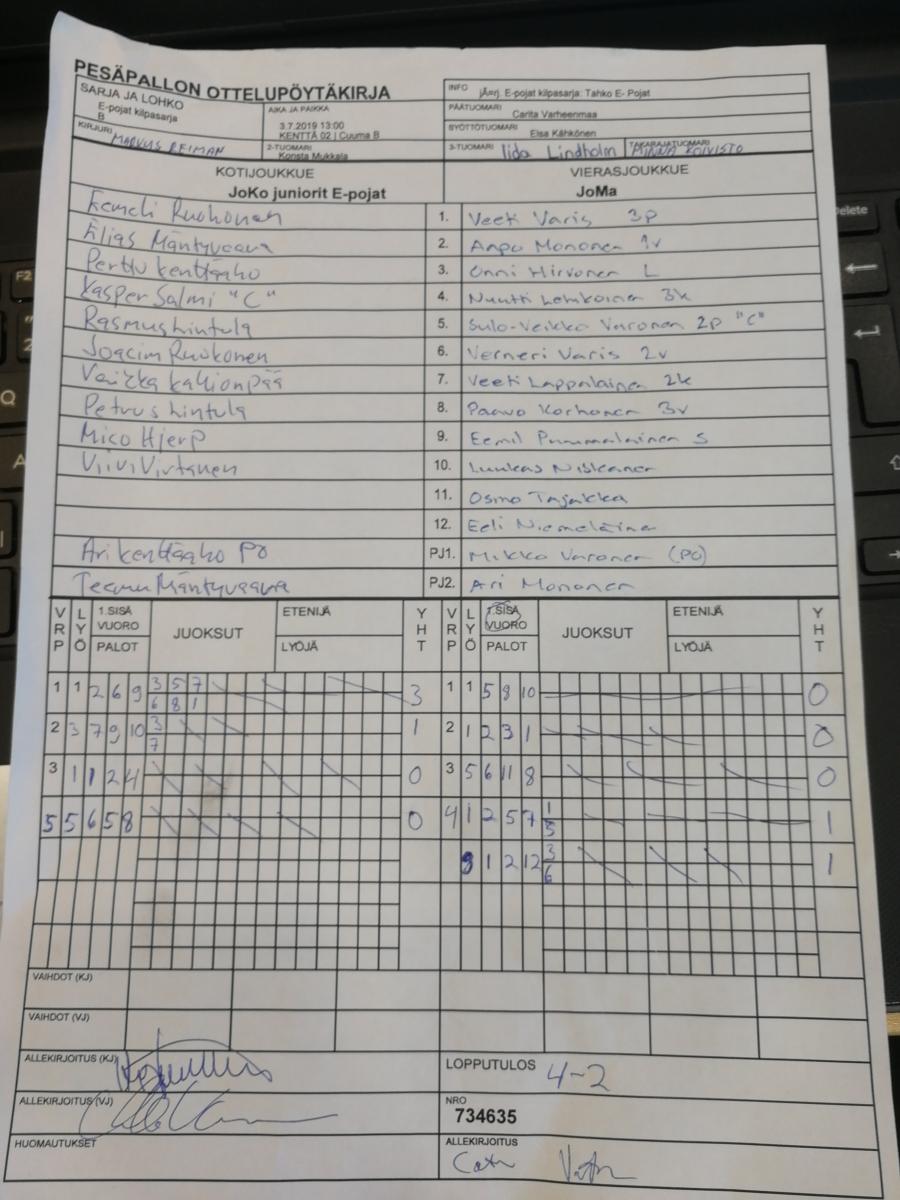 PESÄPALLON OTTELUPÖYTÄKIRJA
SARJA JA LOHKO
E-pojat kilpasarja
B
AIKA JA PAIKKA
3.7.2019 13:00
KENTTÄ 02 | Cuuma B
INFO jÃ¤rj. E-pojat kilpasarja: Tahko E- Pojat
PÄÄTUOMARI Carita Varheenmaa
SYÖTTÖTUOMARI Elsa Kähkönen
KIRJURI MARKUS REIMAN
2-TUOMARI Konsta Mukkala
3-TUOMARI Iida Lindholm
TAKARAJATUOMARI MINNA KOIVISTO
KOTIJOUKKUE
JoKo juniorit E-pojat
VIERASJOUKKUE
JoMa
Eemeli Ruohonen 1. Veeti Varis 3p
Elias Mäntyvaara 2. Aapo Mononen 1v
Perttu Kenttäaho 3. Onni Hirvonen L
Kasper Salmi "C" 4. Nuutti 3k
Rasmus Lintula 5. Sulo-Veikko Varonen 2p "C"
Joacim Ruokonen 6. Verneri Varis 2v
Kallionpää 7. Veeti Lappalainen 2k
Petrus Lintula 8. Paavo Korhonen 3v
Mico Hjerp 9. Eemil Puumalainen S
Viivi Virtanen 10. Luukas Niskanen
11. Osmo Tajakka
12. Eeli Niemeläinen
Ari Kenttäaho PO PJ1. Mikko Varonen (PO)
Teemu Mäntyvaara PJ2. Ari Mononen
VRP LYÖ 1.SISÄ VUORO PALOT JUOKSUT ETENIJÄ LYÖJÄ YHT VRP LYÖ 1.SISÄ VUORO PALOT JUOKSUT ETENIJÄ LYÖJÄ YHT
1 1 2 6 9 3 5 7 3 1 1 5 8 10 0
6 8 1
2 3 7 9 10 3 1 2 1 2 3 1 0
7
3 1 1 2 4 0 3 5 6 11 8 0
5 5 6 5 8 0 4 1 2 5 7 1 1
5
1 2 12 3 1
6
VAIHDOT (KJ)
VAIHDOT (VJ)
ALLEKIRJOITUS (KJ)
LOPPUTULOS 4-2
ALLEKIRJOITUS (VJ)
NRO
734635
HUOMAUTUKSET
ALLEKIRJOITUS
Delete
F2
2
Q
A